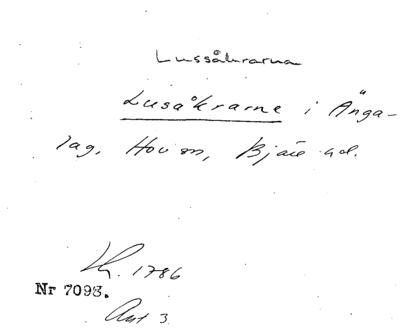 Lussåkrarna
Lusåkrarne i Änga-
lag, Hov sn, Bjäre hd.
Lh. 1786
Nr 7098.
Aut 3